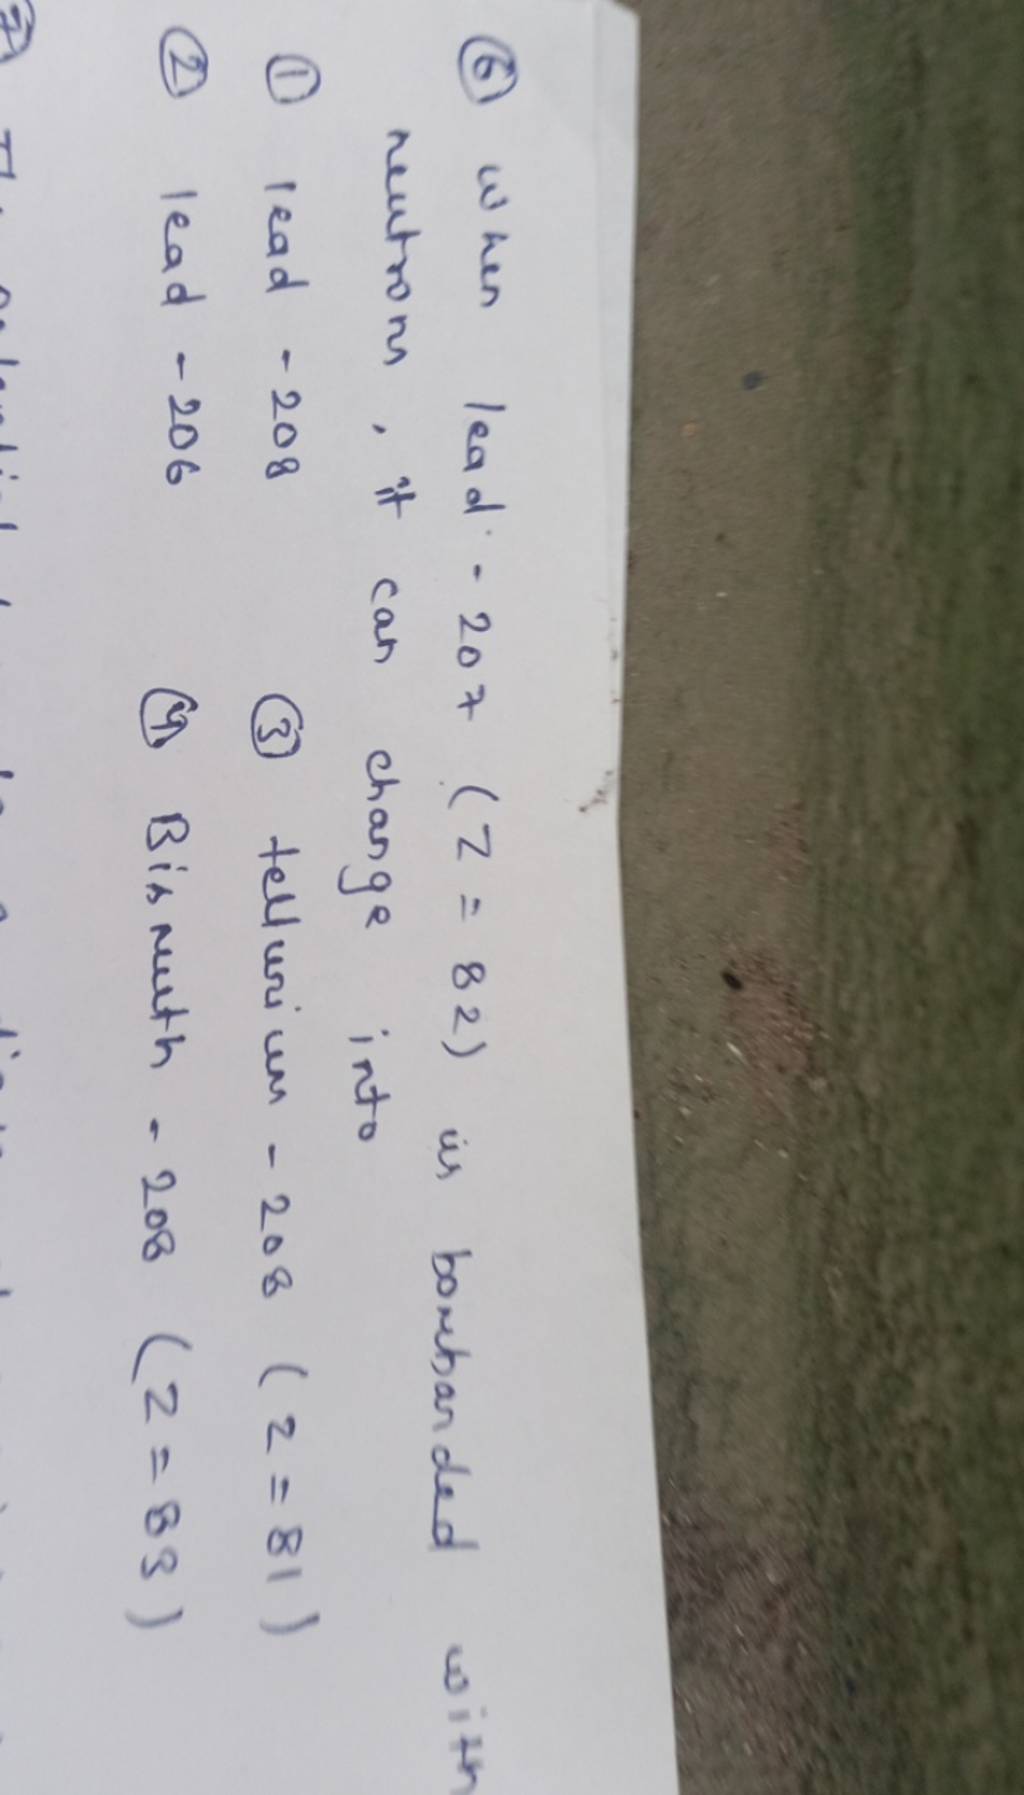 ⑥ When lead - 207 (Z = 82) is bombarded with
neutrons, it can change into
① lead - 208 ③ tellurium - 208 (Z = 81)
② lead - 206 ④ Bismuth - 208 (Z = 83)
⑦